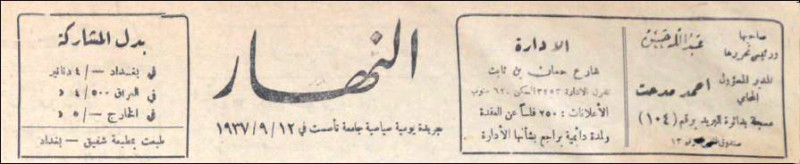 صاحبها
ورئيس تحريرها
عبد الله حسن
المدير المسؤول
المحامي
احمد مدحت
مسجلة بدائرة البريد برقم (١٠٤)
صندوق
الادارة
شارع حسان بن ثابت
تلفون الادارة ٣٢٥٣ السكن ٦٢٠ جنوب
الأعلانات : ٢٥٠ فلساً عن العقدة
ولمدة دائمية يراجع بشأنها الأدارة
النهار
جريدة يومية سياسية جامعة تأسست في ١٩٣٧/٩/١٢
بدل المشاركة
في بغداد —/٤ دنانير
في العراق ٤/٥٠٠ د
في الخارج —/٥ د
طبعت بمطبعة شفيق - بغداد